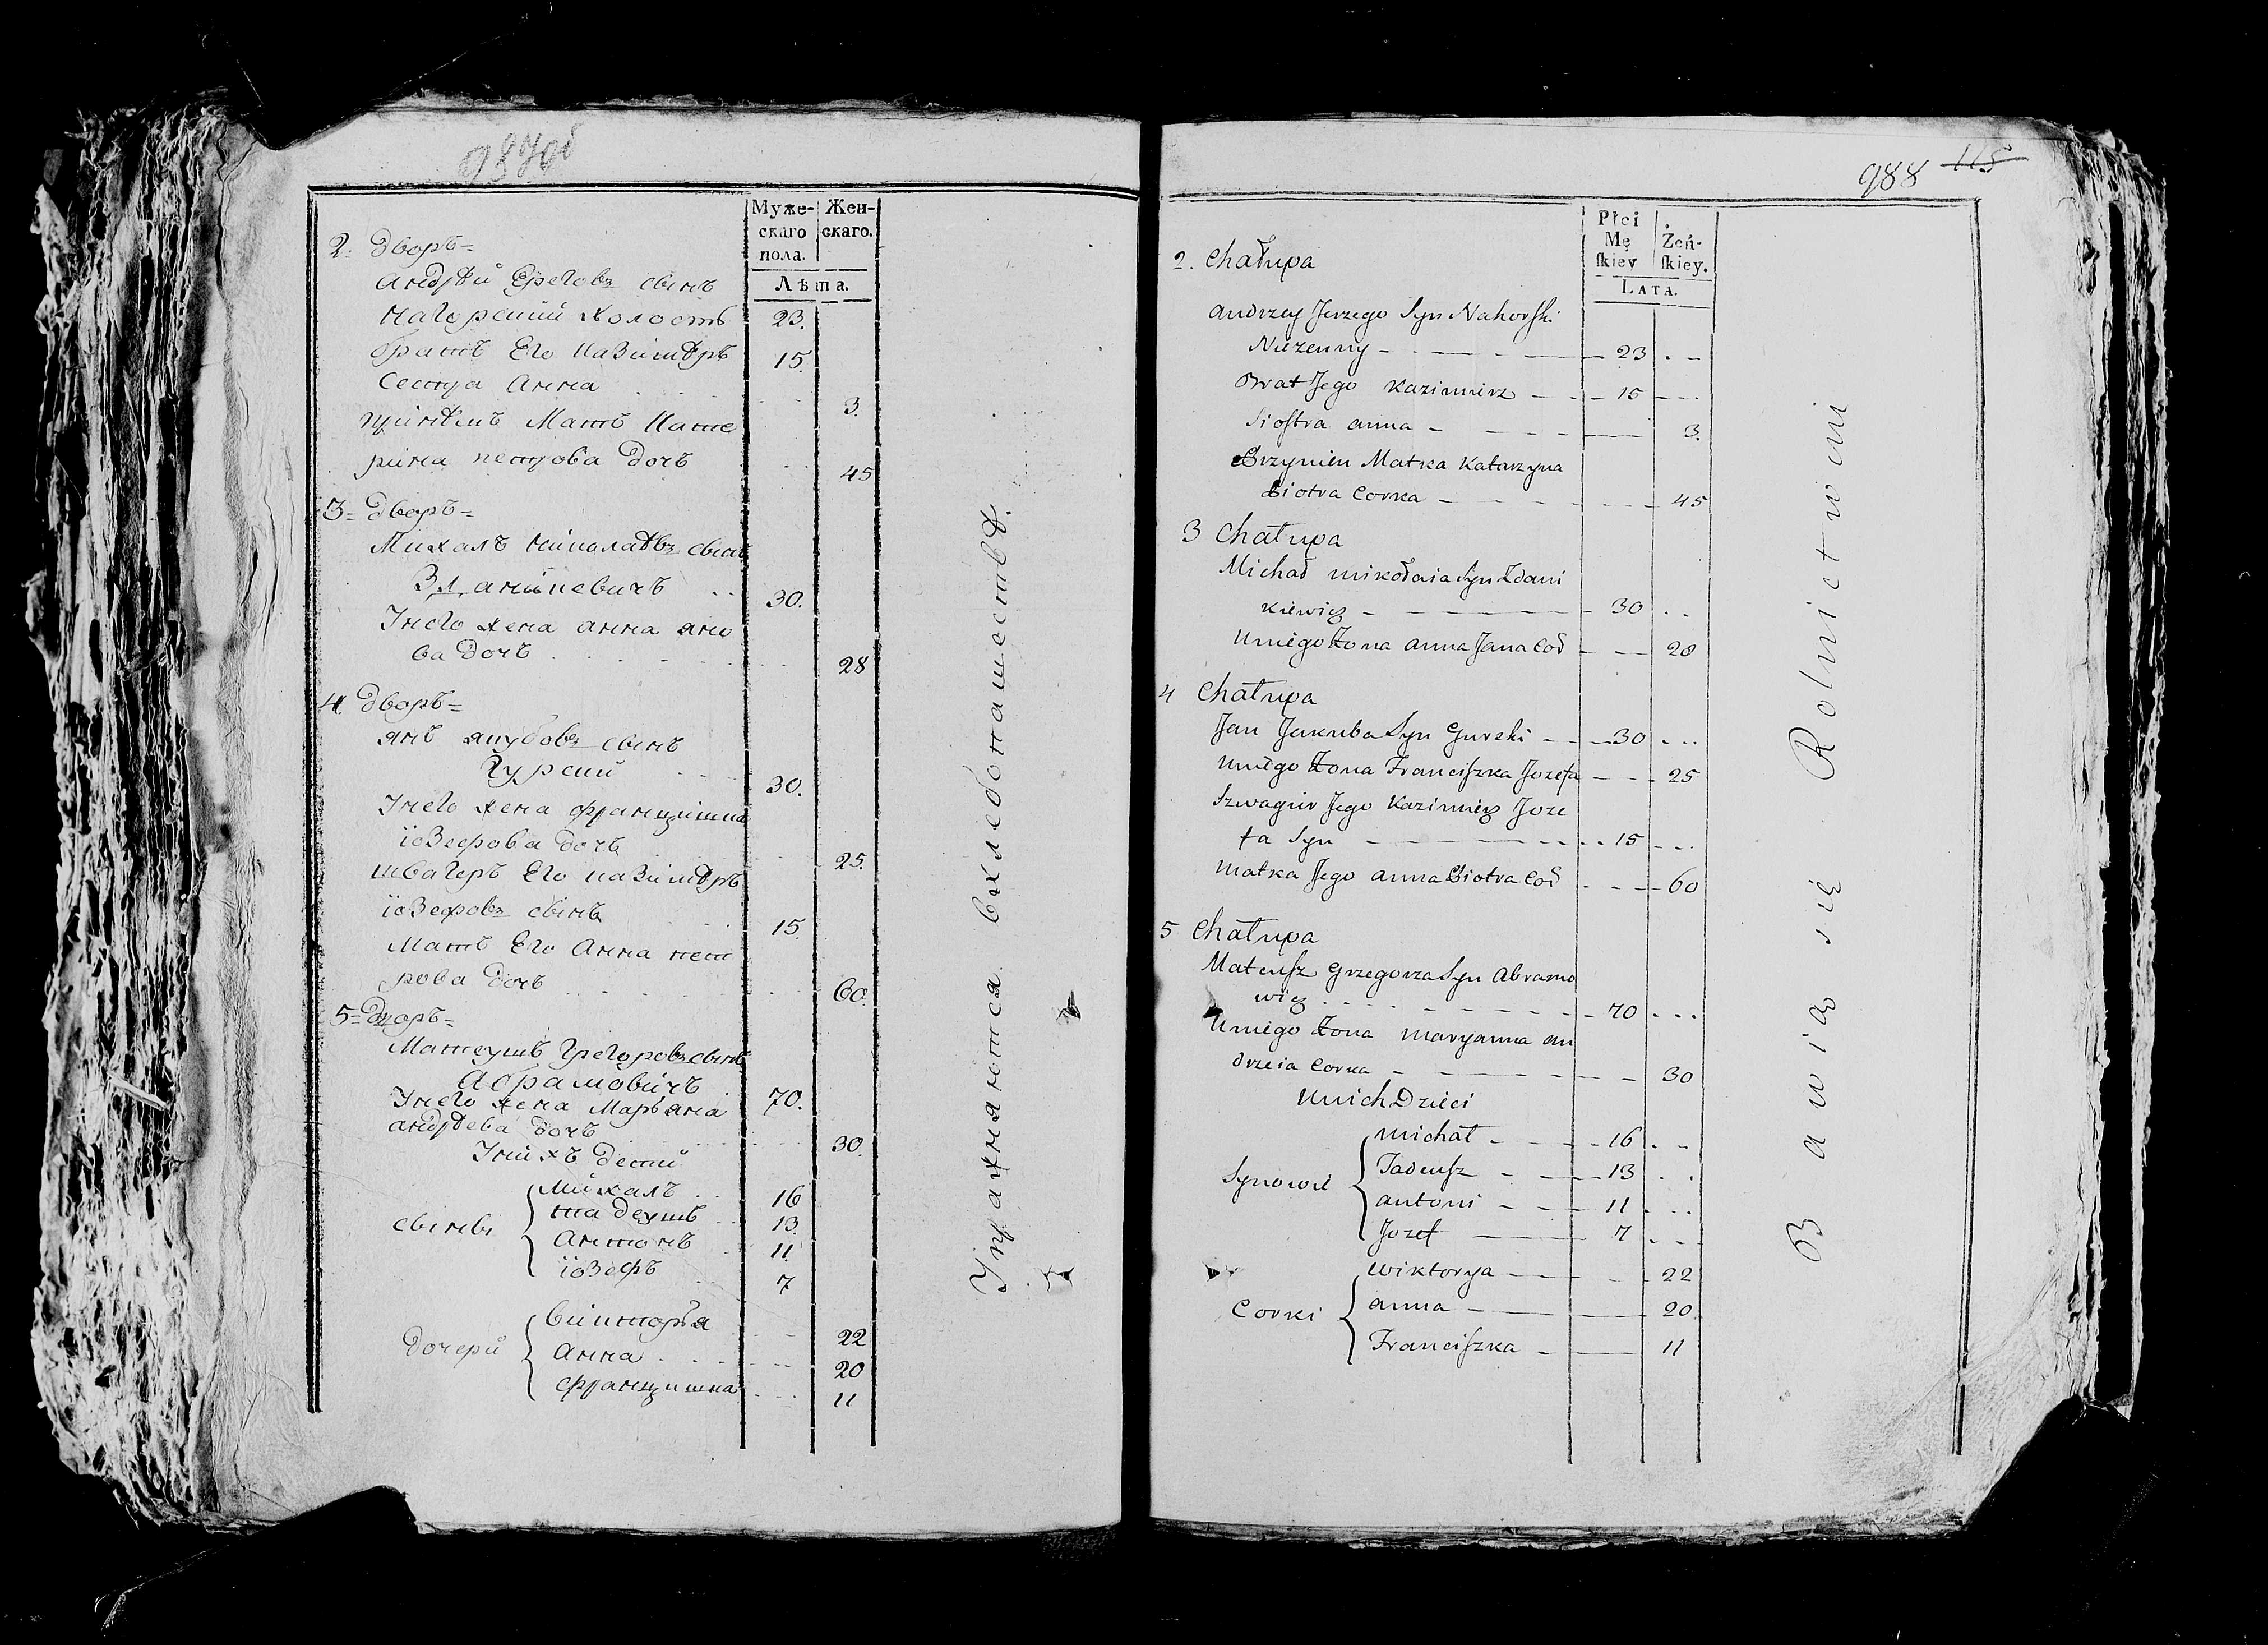 987об
Муже-
скаго
пола.
Жен-
скаго.
Лѣта.
2. Дворъ=
Андрѣй Ерѣговъ сынъ
Нагорский холостъ 23.
братъ Его Казимѣръ 15.
Сестра Анна 3.
принѣмъ Матъ Кате
рина петрова дочь 45
3= Дворъ=
Михалъ Николаѣвъ сынъ
Зданикевичъ 30.
Унего жена анна яно
ва дочь 28
4. Дворъ=
янъ якубовъ сынъ
Гурский 30.
Унего жена францишка
іоЗефова дочь 25.
швагеръ Его каЗимѣръ
іоЗефовъ сынъ 15.
Матъ Его Анна пет
рова дочь 60.
5= Дворъ=
Матеушъ Грегоровъ сынъ
Абрамовичъ 70.
Унего жена Марьяна
андрѣева дочь 30.
Унихъ дети
сыновъ
Михалъ 16
тадеушъ 13
Антонъ 11
іоЗефъ 7
дочери
викторья 22
Анна 20
францишка 11
Упражняются вхлебопашествѣ.
988 115
Płci
Mę
ſkiey
Żeń-
ſkiey.
LATA.
2. Chałupa
Andrzey Jerzego Syn Nahorſki
Nieżenny 23
Brat Jego Kazimierz 15
Sioſtra anna 3.
Przyniem Matka Katarzyna
Piotra Corka 45
3 Chałupa
Michał mikołaia Syn Zdani
kiewicz 30
Uniego Żona anna Jana Coʳ 28
4 Chałupa
Jan Jakuba Syn Gurski 30
Uniego Żona Franciſzka Jozefa 25
Szwagier Jego Kazimierz Joze
fa Syn 15
Matka Jego anna Piotra Coʳ 60
5 Chałupa
Mateuſz Grzegorza Syn Abramo
wicz 70
Uniego Żona Maryanna an
drzeia Corka 30
Unich Dzieci
Synowie
Michał 16
Tadeuſz 13
antoni 11
Jozef 7
Corki
Wiktorya 22
anna 20
Franciſzka 11
Bawią się Rolnictwem